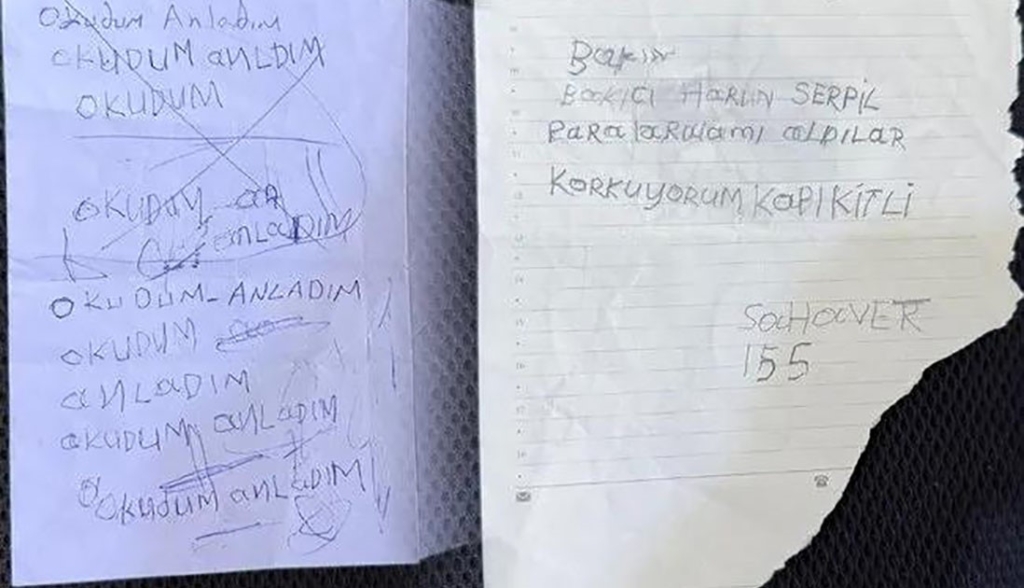 Okudum Anladım
OKUDUM aNLDIM
OKUDUM
OKUDUM
aNLaDIM
OKUDUM-ANLADIM
OKUDUM
aNLaDIM
OKUDUM aNLaDIM
OKUDUM aNLADIM
Bakın
BaKICI HaRUN SERPİL
PaRaLaRımı aLDILaR
KORKUYORUM KaPI KİTLİ
SaHaVET
155